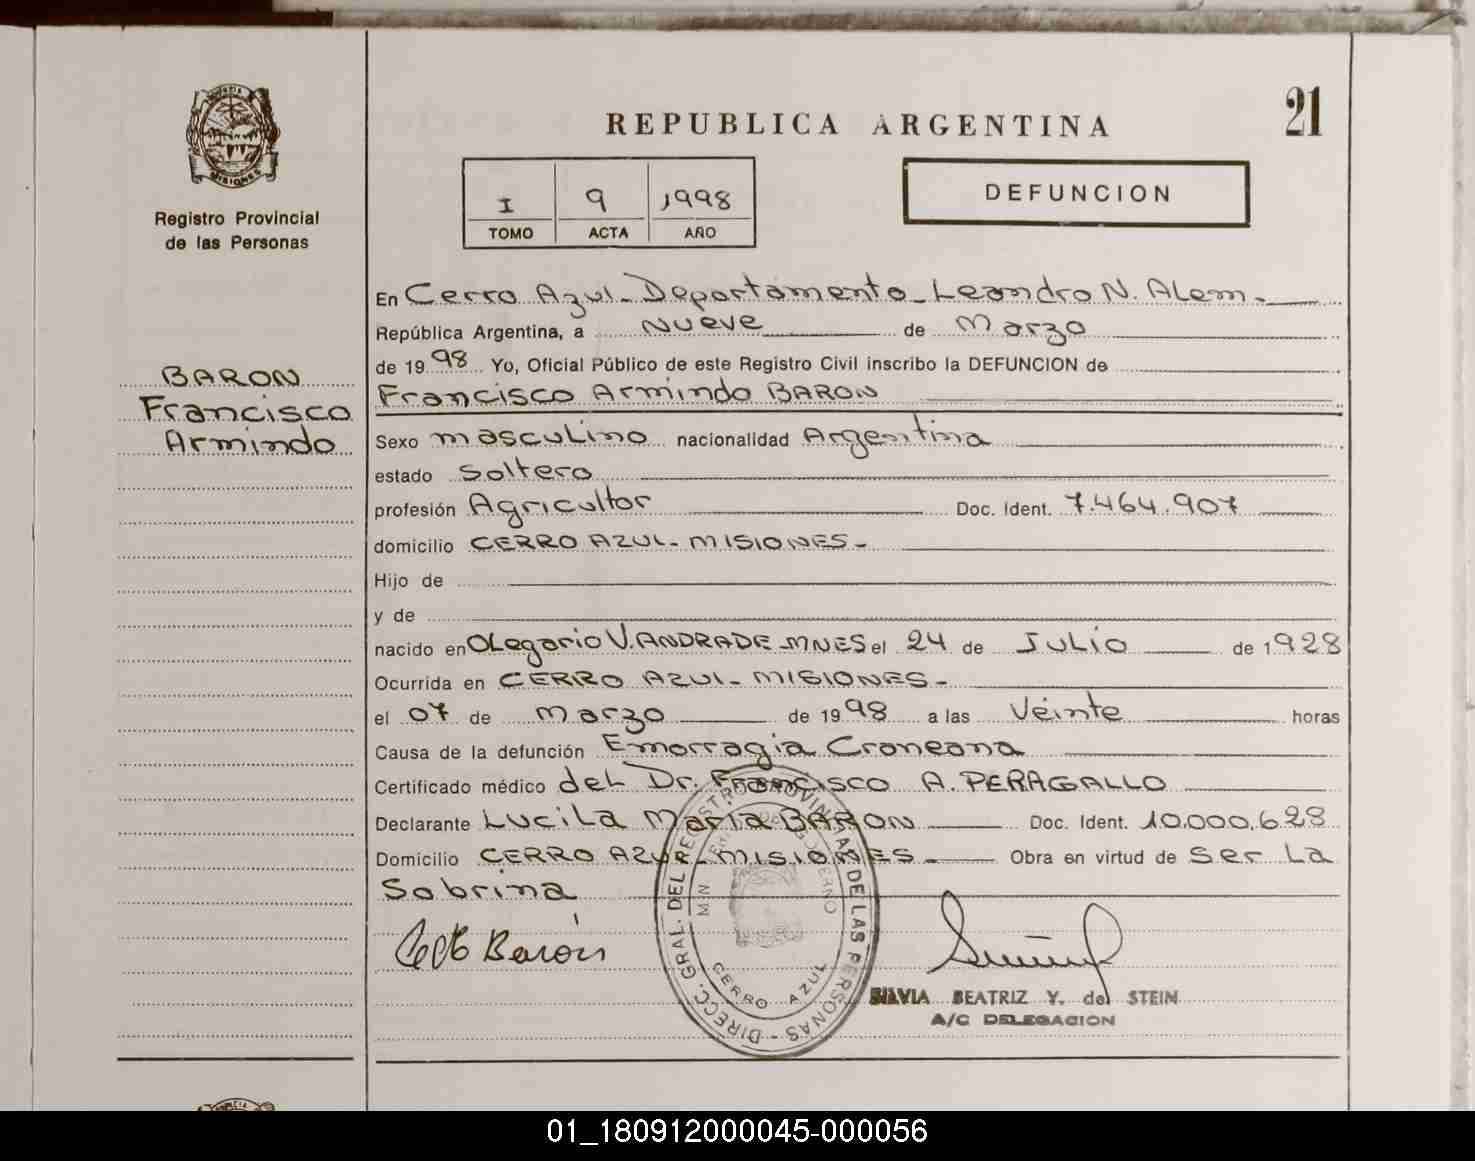 PROVINCIA
MISIONES
Registro Provincial
de las Personas
BARON
Francisco
Armindo
21
REPUBLICA ARGENTINA
I 9 1998
TOMO ACTA AÑO
DEFUNCION
En Cerro Azul - Departamento - Leandro N. Alem -
República Argentina, a Nueve de Marzo
de 1998 Yo, Oficial Público de este Registro Civil inscribo la DEFUNCION de
Francisco Armindo BARON
Sexo masculino nacionalidad Argentina
estado Soltero
profesión Agricultor Doc. Ident. 7.464.907
domicilio CERRO AZUL - MISIONES -
Hijo de
y de
nacido en OLegario V. ANDRADE - MNES el 24 de JULIO de 1928
Ocurrida en CERRO AZUL - MISIONES -
el 07 de Marzo de 1998 a las Veinte horas
Causa de la defunción Emorragia Craneana
Certificado médico del Dr. Francisco A. PERAGALLO
Declarante LuciLa Maria BARON Doc. Ident. 10.000.628
Domicilio CERRO AZUL - MISIONES - Obra en virtud de Ser La
Sobrina
Barón
DIRECC. GRAL. DEL REGISTRO PROVINCIAL DE LAS PERSONAS -
GOBIERNO
CERRO AZUL
SILVIA BEATRIZ Y. de STEIN
A/C DELEGACION
01_180912000045-000056